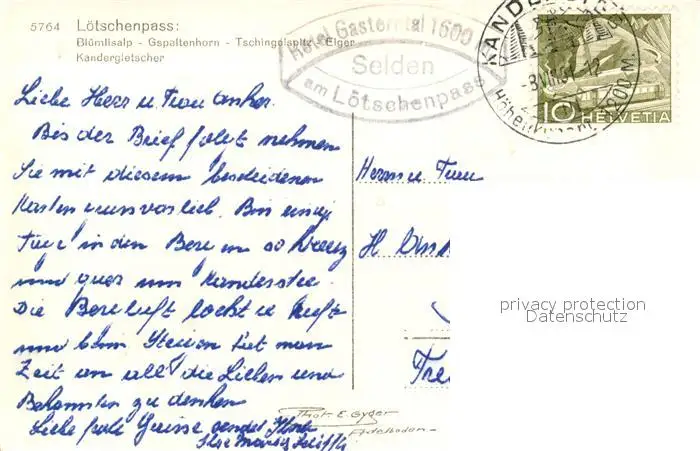 5764 Lötschenpass:
Blümlisalp - Gspaltenhorn - Tschingelspitz - Eiger
Kandergletscher
Hotel Gasterntal 1600
Selden
am Lötschenpass
KANDERSTEG
-8.VIII.51.-12
Höhenkurort 1200 M.
10 HELVETIA
Liebe Herr u Frau Anher.
Bis der Brief folgt nehmen
Sie mit diesem bescheidenen
Karten vorlieb. Bin einige
Tage in den Bergen so kreuz
und quer um Kandersteg.
Die Bergluft lockt u ruft
und beim Steigen hat man
Zeit an all die Lieben und
Bekannten zu denken
Liebe frohe Grüsse sendet Ihnen
Ihre
Herrn u Frau
H
Phot. E. Gyger
Adelboden
privacy protection
Datenschutz